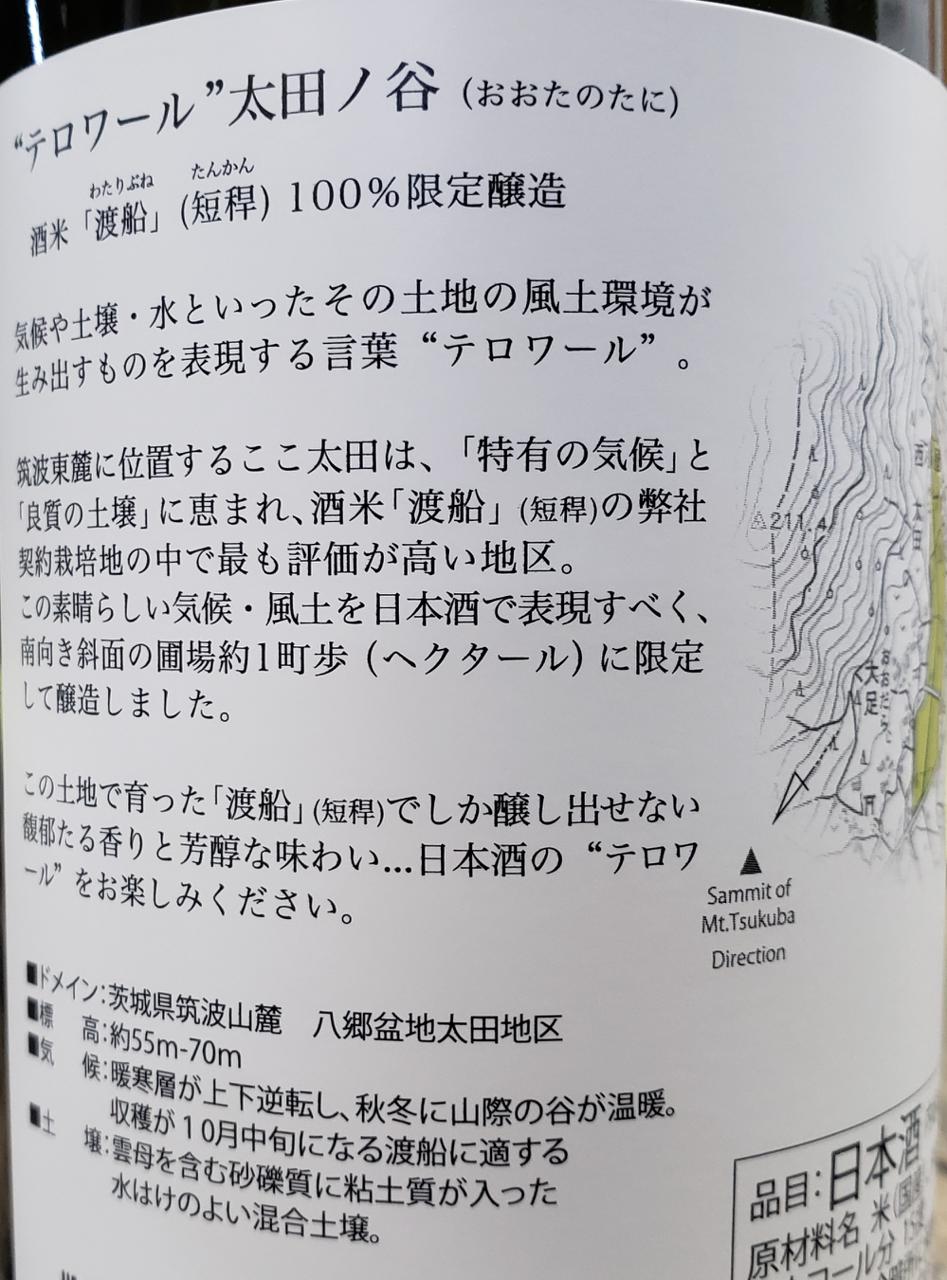 “テロワール”太田ノ谷（おおたのたに）
わたりぶね たんかん
酒米「渡船」(短稈) 100%限定醸造
気候や土壌・水といったその土地の風土環境が
生み出すものを表現する言葉“テロワール”。
筑波東麓に位置するここ太田は、「特有の気候」と
「良質の土壌」に恵まれ、酒米「渡船」(短稈)の弊社
契約栽培地の中で最も評価が高い地区。
この素晴らしい気候・風土を日本酒で表現すべく、
南向き斜面の圃場約1町歩（ヘクタール）に限定
して醸造しました。
この土地で育った「渡船」(短稈)でしか醸し出せない
馥郁たる香りと芳醇な味わい…日本酒の“テロワ
ール”をお楽しみください。
■ドメイン：茨城県筑波山麓 八郷盆地太田地区
■標 高：約55m-70m
■気 候：暖寒層が上下逆転し、秋冬に山際の谷が温暖。
収穫が10月中旬になる渡船に適する
■土 壌：雲母を含む砂礫質に粘土質が入った
水はけのよい混合土壌。
211.4
大足
おおだら
Sammit of
Mt.Tsukuba
Direction
品目：日本酒
原材料名 米(国産